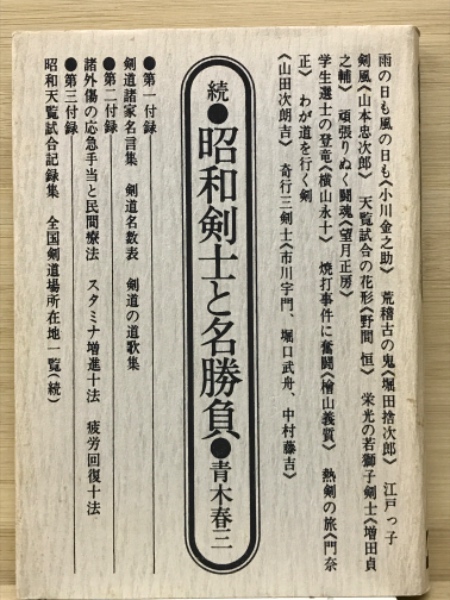 雨の日も風の日も《小川金之助》 荒稽古の鬼《堀田捨次郎》 江戸っ子
剣風《山本忠次郎》 天覧試合の花形《野間 恒》 栄光の若獅子剣士《増田貞
之輔》 頑張りぬく闘魂《望月正房》
学生選士の登竜《横山永十》 焼打事件に奮闘《檜山義質》 熱剣の旅《門奈
正》 わが道を行く剣
《山田次朗吉》 奇行三剣士《市川宇門、堀口武舟、中村藤吉》
続●昭和剣士と名勝負●青木春三
●第一付録
剣道諸家名言集 剣道名数表 剣道の道歌集
●第二付録
諸外傷の応急手当と民間療法 スタミナ増進十法 疲労回復十法
●第三付録
昭和天覧試合記録集 全国剣道場所在地一覧(続)